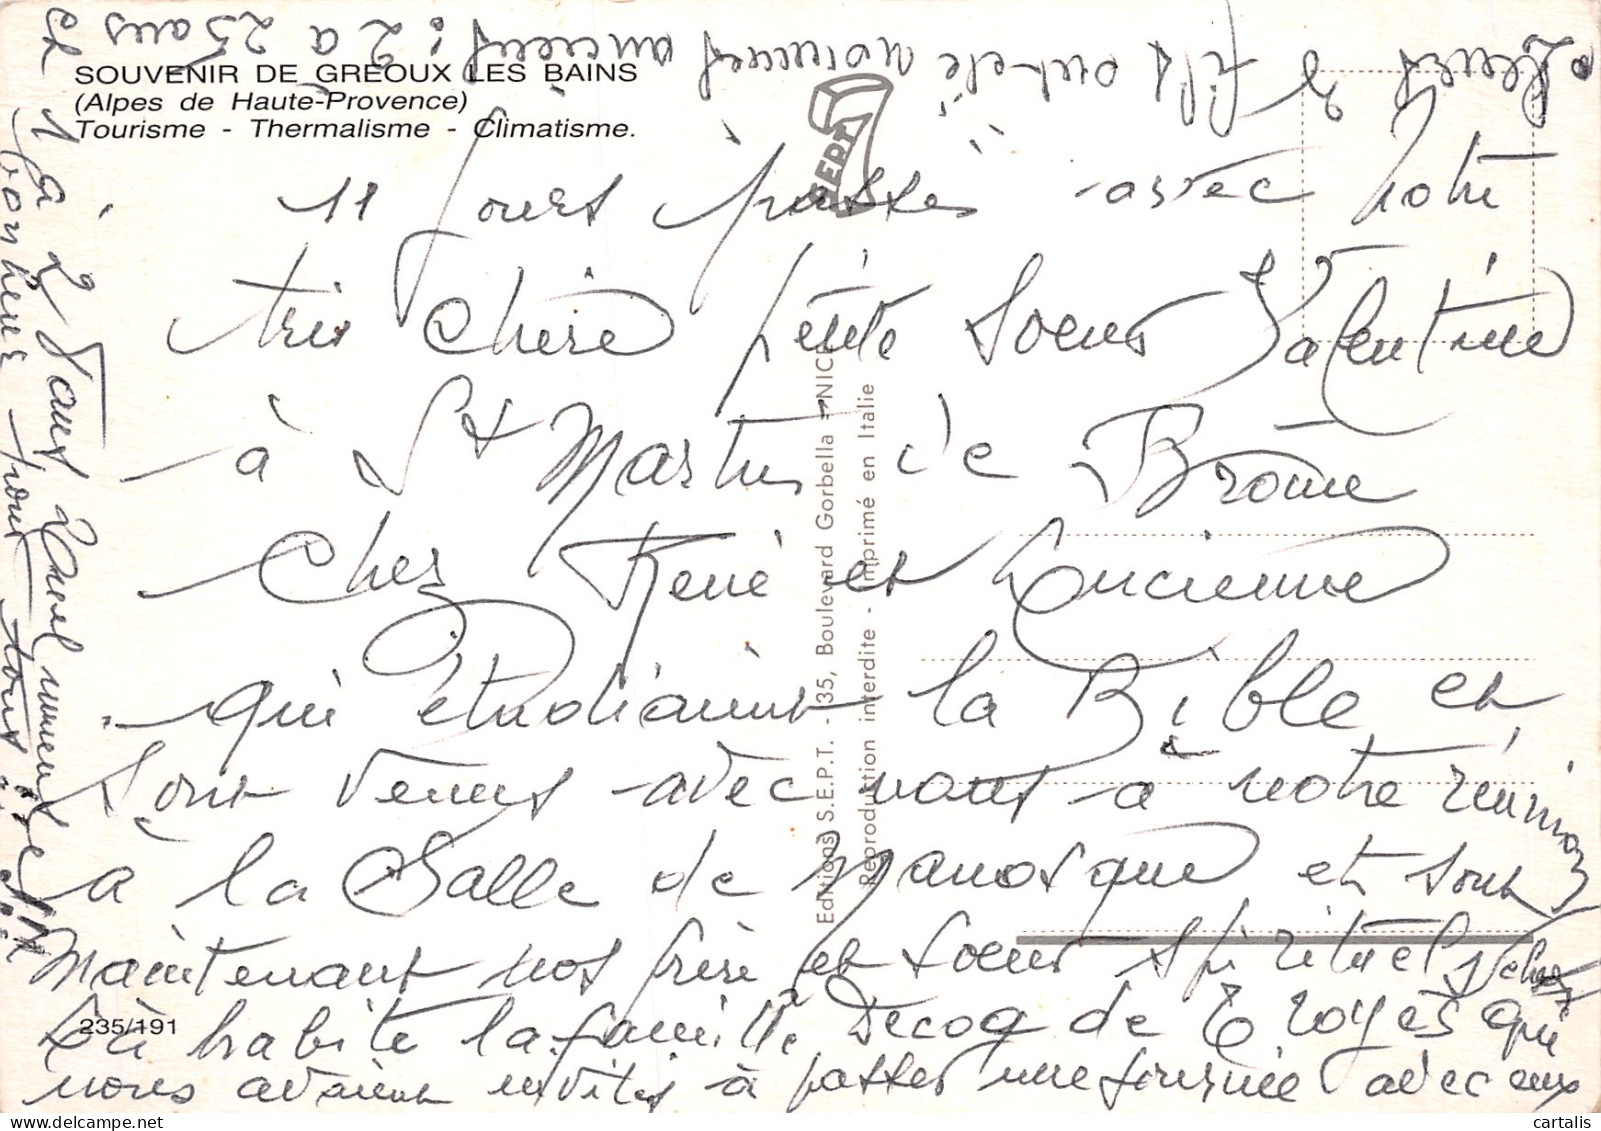 SOUVENIR DE GREOUX LES BAINS
(Alpes de Haute-Provence)
Tourisme - Thermalisme - Climatisme.
SEPT
11 jours passés avec notre
très chère petite soeur Valentine
à St Martin de Brôme
chez René et Lucienne
qui étudiaient la Bible et
sont venus avec nous à notre réunion
à la Salle de Manosque et sont
maintenant nos frère et soeur spirituels, chez
où habite la famille Decoq de Troyes qui
nous avaient invités à passer une journée avec eux
235/191
Editions S.E.P.T. - 35, Boulevard Gorbella - NICE
Reproduction interdite - Imprimé en Italie
fils ont été nommés anciens : 2 à 25 ans et
1 à 27 ans quel immense
bonheur pour tous
cartalis